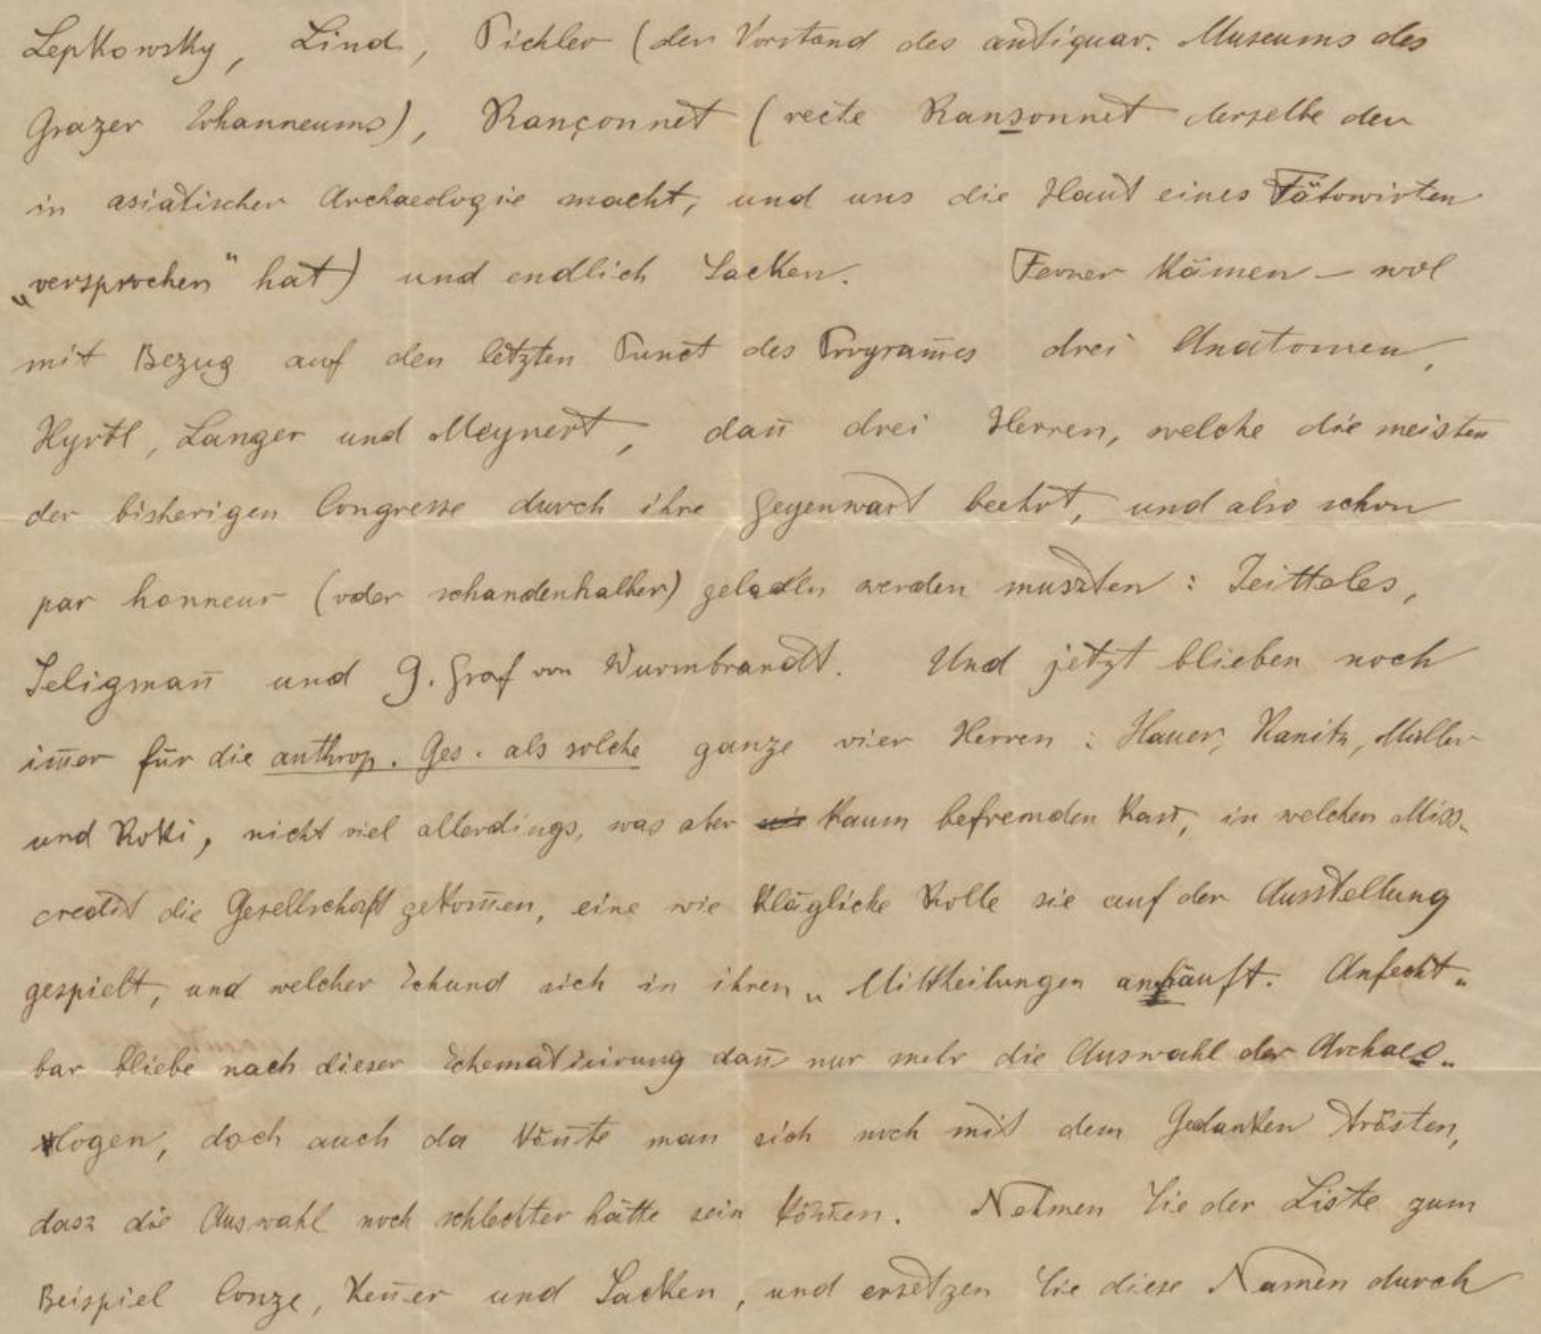 Lepkowsky, Lind, Pichler (der Vorstand des antiquar. Museums des
Grazer Iohanneums), Rançonnet (recte Ransonnet derselbe der
in asiatischer Archaeologie macht, und uns die Haut eines Tätowirten
„versprochen“ hat) und endlich Sacken. Ferner kämen – wol
mit Bezug auf den letzten Punct des Programm̅es drei Anatomen,
Hyrtl, Langer und Meynert, dan̅ drei Herren, welche die meisten
der bisherigen Congresse durch ihre Gegenwart beehrt, und also schon
par honneur (oder schandenhalber) geladen werden muszten: Jeitteles,
Seligman̅ und G. Graf von Wurmbrandt. Und jetzt blieben noch
im̅er für die anthrop. Ges. als solche ganze vier Herren: Hauer, Kanitz, Müller
und Roki, nicht viel allerdings, was aber kaum befremden kan̅, in welchen Miss-
credit die Gesellschaft gekom̅en, eine wie klägliche Rolle sie auf der Ausstellung
gespielt, und welcher Schund sich in ihren „Mittheilungen anhäuft. Anfecht-
bar bliebe nach dieser Schematisirung dan̅ nur mehr die Auswahl der Archaeo-
logen, doch auch da kön̅te man sich noch mit dem Gedanken trösten,
dasz die Auswahl noch schlechter hätte sein kön̅en. Nehmen Sie der Liste zum
Beispiel Conze, Ken̅er und Sacken, und ersetzen Sie diese Namen durch